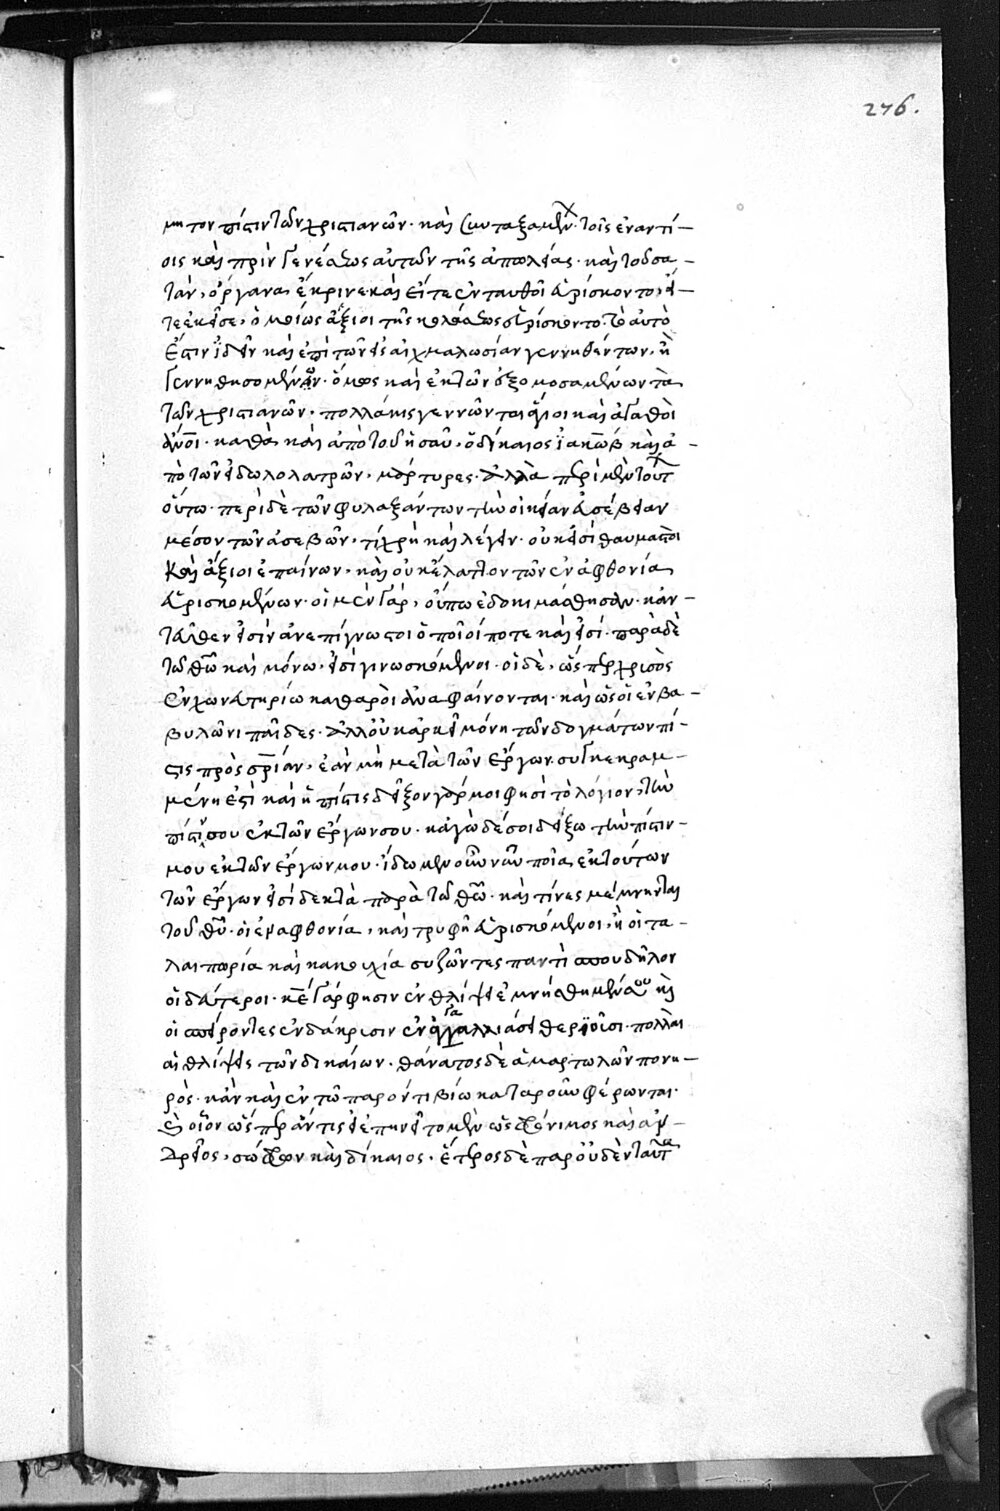 276.
μη τον πίστιν τῶν χριστιανῶν· καὶ συνταξαμένων τοῖς ἐναντί-
οις καὶ πρὶν γενέσεως αὐτῶν τῆς ἀπωλείας· καὶ τοῦ σα-
τὰν, ὄργανα ἔκρινε καὶ εἴτε ἐνταυθοῖ εὑρίσκοντο, εἴ-
τε ἐκεῖσε, ὁμοίως ἄξιοι τῆς κολάσεως εὑρίσκοντο. τὸ αὐτὸ
ἔστιν ἰδεῖν καὶ ἐπὶ τῶν εἰς αἰχμαλωσίαν γεννηθέντων, ἢ
γεννηθησομένων· ὅμως καὶ ἐκ τῶν ἐξομοσαμένων τὰ
τῶν χριστιανῶν, πολλάκις γεννῶνται ἅγιοι καὶ ἀγαθοὶ
ἄνοι· καθὰ καὶ ἀπὸ τοῦ ἡσαῦ, ὁ δίκαιος ἰακὼβ καὶ ἀ-
πὸ τῶν εἰδωλολατρῶν, μάρτυρες. ἀλλὰ περὶ μὲν τούτων
οὕτω· περὶ δὲ τῶν φυλαξάντων τὴν οἰκείαν εὐσέβειαν
μέσον τῶν ἀσεβῶν, τί χρὴ καὶ λέγειν· οὐκ εἰσὶ θαυμαστοὶ
καὶ ἄξιοι ἐπαίνων, καὶ οὐκ ἔλαττον τῶν ἐν ἀφθονία
εὑρισκομένων· οἱ μὲν γὰρ, οὔπω ἐδοκιμάσθησαν· κἀν-
τεῦθεν εἰσὶν ἀνεπίγνωστοι ὁποῖοί ποτε καὶ εἰσί· παρὰ δὲ
τῶ θῶ καὶ μόνω, εἰσὶ γινωσκόμενοι· οἱ δὲ, ὥσπερ χρυσὸς
ἐν χωνευτηρίω καθαροὶ ἀναφαίνονται· καὶ ὡς οἱ ἐν βα-
βυλῶνι παῖδες. ἀλλ' οὐκ ἀρκεῖ μόνη τῶν δογμάτων πί-
στις πρὸς σρίαν, ἐὰν μὴ μετὰ τῶν ἔργων συγκεκραμ-
μένη ἐστὶ καὶ ἡ πίστις δεῖξον γάρ μοι φησὶ τὸ λόγιον, τὴν
πίστιν σου ἐκ τῶν ἔργων σου· κἀγὼ δέ σοι δείξω τὴν πίστιν
μου ἐκ τῶν ἔργων μου· ἴδωμεν οὖν νῦν ποῖα ἐκ τούτων
τῶν ἔργων εἰσὶ δεκτὰ παρὰ τῶ θῶ· καὶ τίνες μέμνηνται
τοῦ θῦ· οἱ ἐν ἀφθονία, καὶ τρυφῆ εὑρισκόμενοι, ἢ οἱ τα-
λαιπωρία καὶ κακουχία συζῶντες παντὶ που δῆλον
οἱ δεύτεροι· κε γάρ φησιν ἐν θλίψει ἐμνήσθημέν σου καὶ
οἱ σπείροντες ἐν δάκρυσιν ἐν ἀγαλλιάσει θεριοῦσι· πολλαὶ
αἱ θλίψεις τῶν δικαίων· θάνατος δὲ ἁμαρτωλῶν πονη-
ρὸς· κἂν καὶ ἐν τῶ παρόντι βίω κατὰ ροῦν φέρωνται·
οἷον ὥσπερ ἄν τις ἐπηνεῖτο μὲν ὡς φρόνιμος καὶ ἀν-
δρεῖος, σώφρων καὶ δίκαιος· ἕτερος δὲ παρ' οὐδὲν ταῦτα